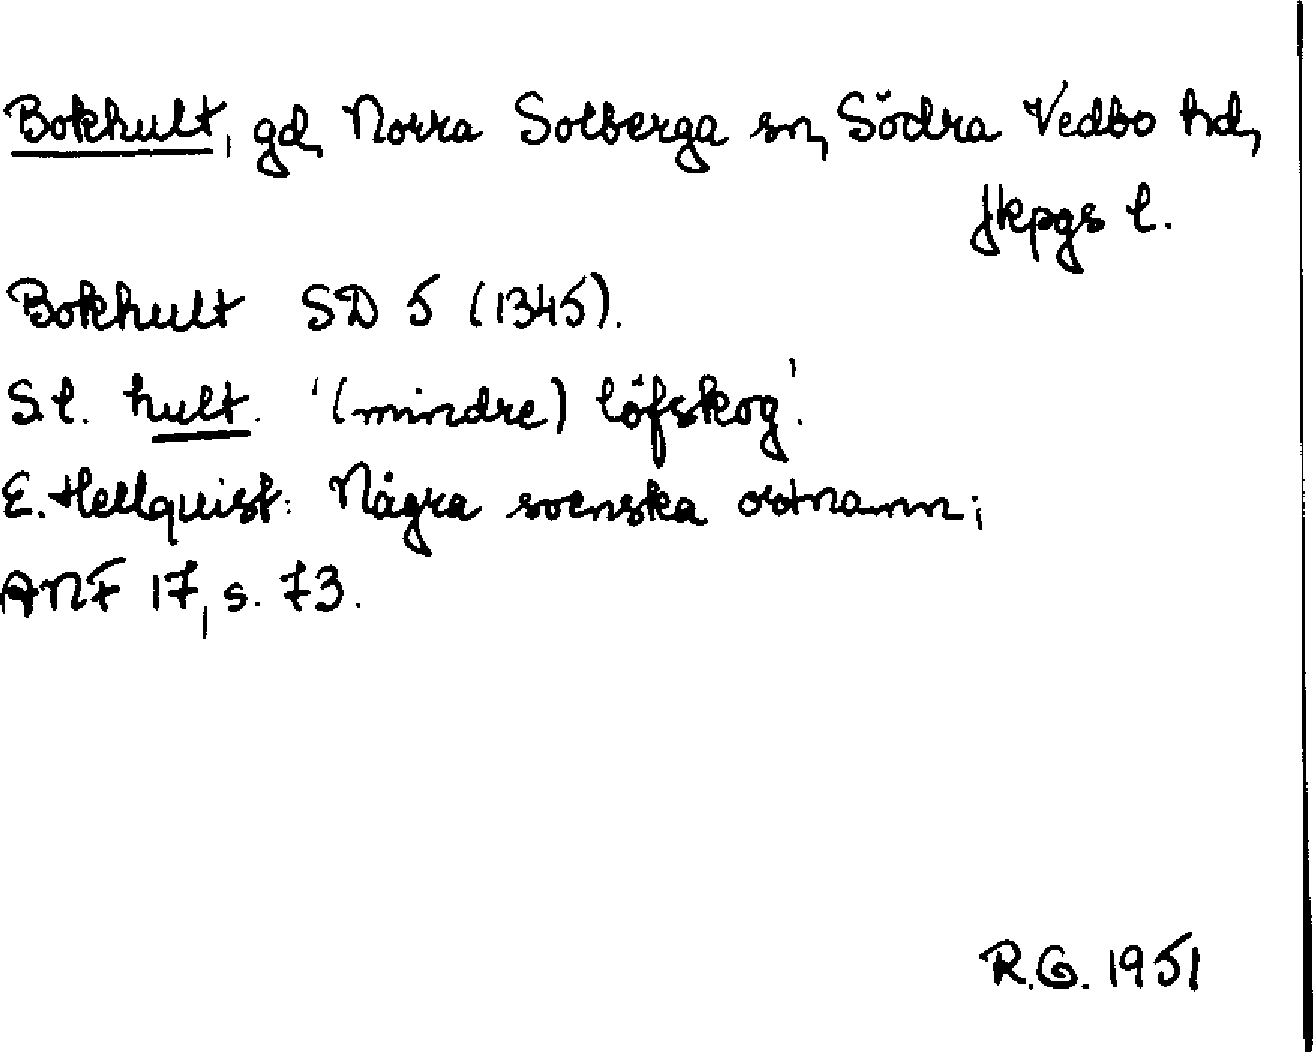 Bokhult, gd, Norra Solberga sn, Södra Vedbo hd,
Jkpgs l.
Bokhult SD 5 (1345).
S.l. hult. '(mindre) löfskog'.
E. Hellquist: Några svenska ortnamn;
ANF 17, s. 73.
R.G. 1951